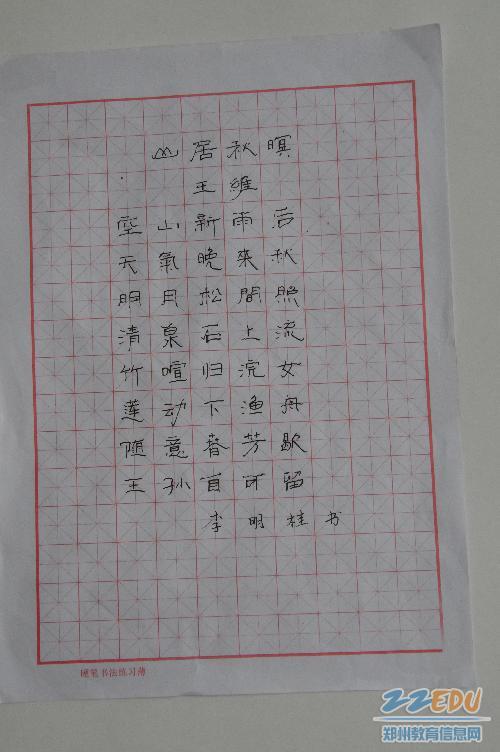 山居秋暝
王維
空山新雨后
天氣晚來秋
明月松間照
清泉石上流
竹喧归浣女
莲动下渔舟
随意春芳歇
王孙自可留
李明桂书
硬笔书法练习薄
ZZEDU
郑州教育信息网